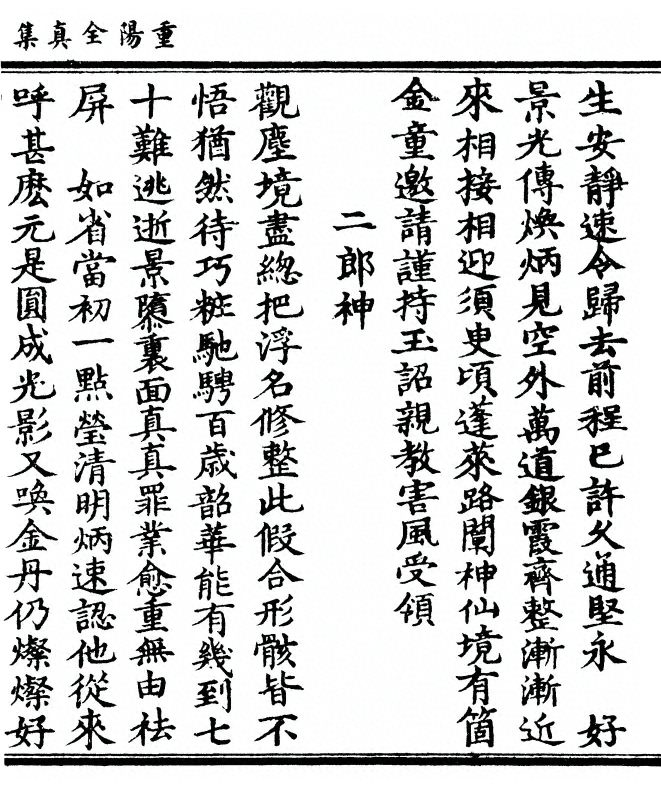 重陽全真集
生安靜速令歸去前程已許久通堅永　好
景光傳煥炳見空外萬道銀霞齊整漸漸近
來相接相迎須臾頃蓬萊路闡神仙境有箇
金童邀請謹持玉詔親教害風受領
二郎神
觀塵境盡總把浮名修整此假合形骸皆不
悟猶然待巧粧馳騁百歲韶華能有幾到七
十難逃逝景隳裏面真真罪業愈重無由祛
屏　如省當初一點瑩清明炳速認他從來
呼甚麽元是圓成光影又喚金丹仍燦燦好